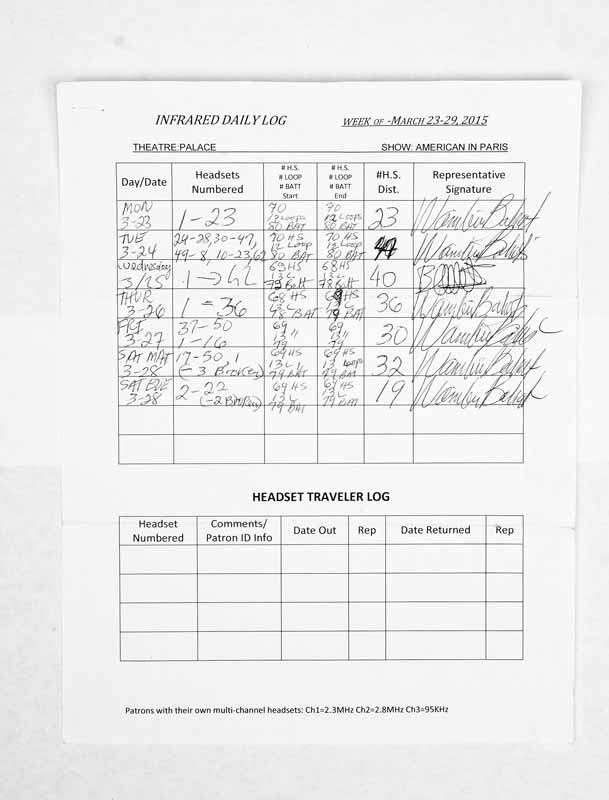 INFRARED DAILY LOG WEEK OF -MARCH 23-29, 2015
THEATRE:PALACE SHOW: AMERICAN IN PARIS
Day/Date Headsets Numbered # H.S. # LOOP # BATT Start # H.S. # LOOP # BATT End #H.S. Dist. Representative Signature
MON 3-23 1-23 70 12 Loops 80 BAT 70 12 Loops 80 BAT 23
TUE 3-24 24-28, 30-47, 49-8, 10-23, 62 70 HS 12 Loop 80 BAT 70 HS 12 Loop 80 BAT
Wednesday 3/25 1 → 42 69 HS 13 L 79 Batt 68 HS 13 L 78 Batt 40
THUR 3-26 1 - 36 68 HS 13 L 78 BAT 69 HS 13 L 79 BAT 36
FRI 3-27 37-50 1-16 69 13 " 79 69 13 " 79 30
SAT MAT 3-28 17-50, 1 (-3 Broken) 69 HS 13 L 79 BAT 69 HS 13 Loops 79 BAT 32
SAT EVE 3-28 2-22 (-2 Broken) 69 HS 13 L 79 BAT 69 HS 13 L 79 BAT 19
HEADSET TRAVELER LOG
Headset Numbered Comments/ Patron ID Info Date Out Rep Date Returned Rep
Patrons with their own multi-channel headsets: Ch1=2.3MHz Ch2=2.8MHz Ch3=95KHz